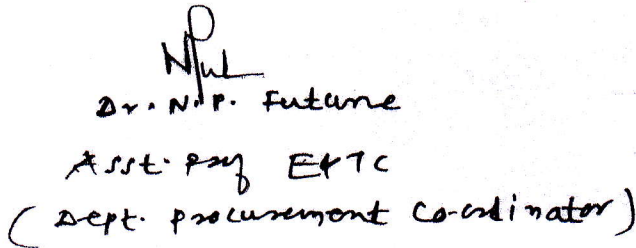 Dr. N. P. Futane
Asst. Prof E&TC
(Dept. Procurement Co-ordinator)